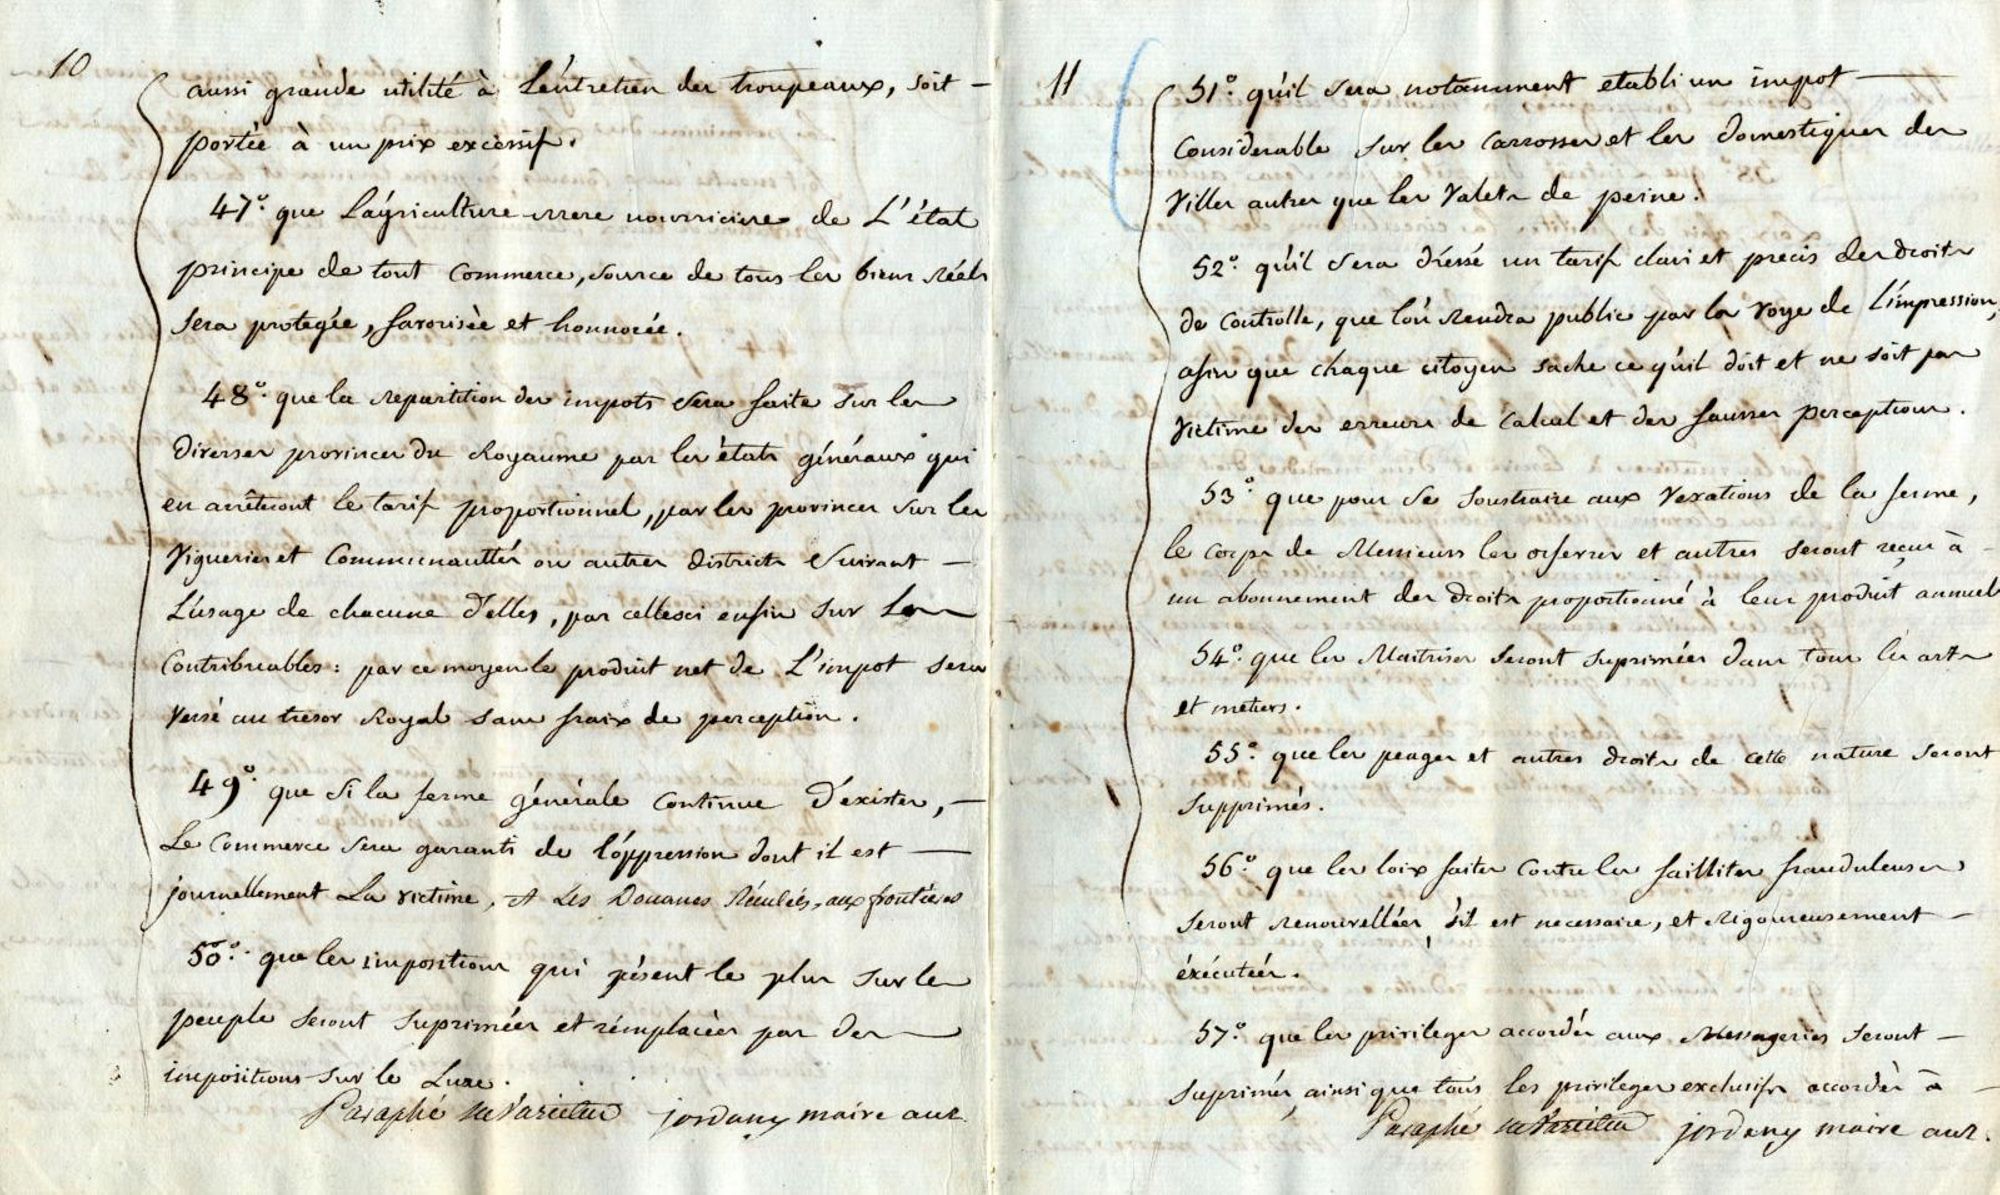 10
aussi grande utilité à L'entretien des troupeaux, soit
portée à un prix excèssif.
47° que L'agriculture mere nourriciere de L'état
principe de tout Commerce, source de tous les biens réels
sera protegée, favorisèe et honnorée.
48° que la repartition des impots sera faite sur les
diverses provinces du Royaume par les états généraux qui
en arrêteront le tarif proportionnel, par les provinces sur les
vigueries et Communauttés ou autres districts suivant
L'usage de chacune d'elles, par cellesci enfin sur Les
Contribuables : par ce moyen le produit net de L'impot sera
versé au tresor Royal sans fraix de perception.
49° que si la ferme générale Continue d'exister,
Le Commerce sera garanti de l'oppression dont il est
journellement La victime, et Les Douanes Réculées, aux frontieres
50° que les impositions qui pésent le plus sur le
peuple seront suprimées et rémplacèes par des
impositions sur le Luxe.
Paraphé jordany maire auz.
11
51° qu'il sera notamment etabli un impot
Considerable sur les Carrosses et les domestiques des
villes autres que les valets de peine.
52° qu'il sera dréssé un tarif clair et precis des droits
de Controlle, que l'on rendra public par la voye de L'impression,
afin que chaque citoyen sache ce qu'il doit et ne soit pas
victime des erreurs de Calcul et des fausses perceptions.
53° que pour se soustraire aux vexations de la ferme,
le Corps de Messieurs les orfevres et autres seront reçus à
un abonnement des droits proportionné à leur produit annuel
54° que les Maitrises seront suprimées dans tous les arts
et métiers.
55° que les peages et autres droits de cette nature seront
supprimés.
56° que les loix faites Contre les faillites frauduleuses
seront renouvellées, s'il est necessaire, et rigoureusement
éxécutées.
57° que les privileges accordés aux Messageries seront
suprimés, ainsi que tous les privileges exclusifs accordès à
Paraphé jordany maire auz.